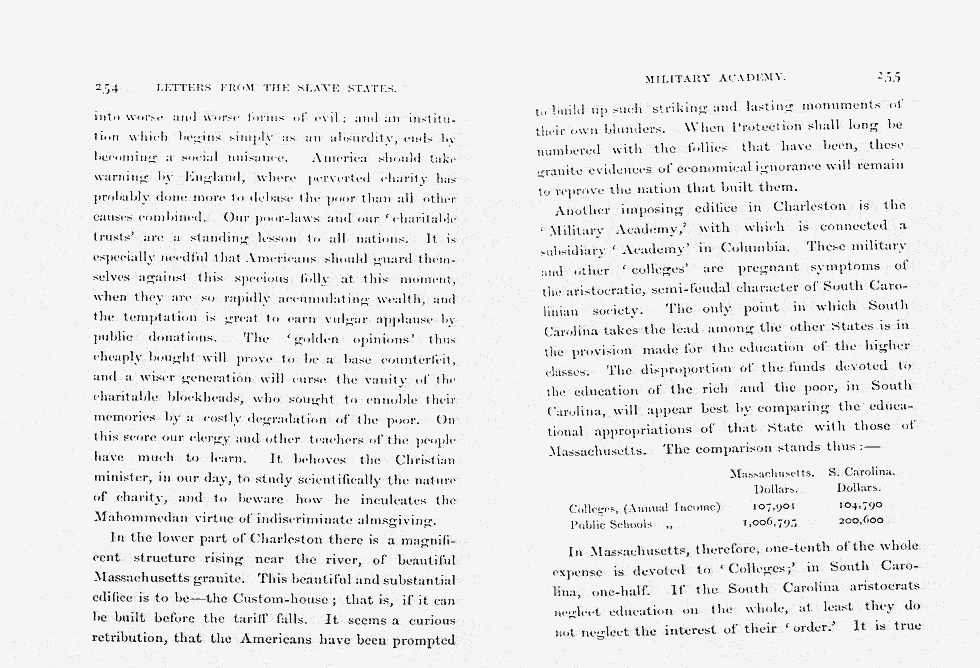 254 LETTERS FROM THE SLAVE STATES.
into worse and worse forms of evil; and an institu-
tion which begins simply as an absurdity, ends by
becoming a social nuisance. America should take
warning by England, where perverted charity has
probably done more to debase the poor than all other
causes combined. Our poor-laws and our ‘charitable
trusts’ are a standing lesson to all nations. It is
especially needful that Americans should guard them-
selves against this specious folly at this moment,
when they are so rapidly accumulating wealth, and
the temptation is great to earn vulgar applause by
public donations. The ‘golden opinions’ thus
cheaply bought will prove to be a base counterfeit,
and a wiser generation will curse the vanity of the
charitable blockheads, who sought to ennoble their
memories by a costly degradation of the poor. On
this score our clergy and other teachers of the people
have much to learn. It behoves the Christian
minister, in our day, to study scientifically the nature
of charity, and to beware how he inculcates the
Mahommedan virtue of indiscriminate almsgiving.
In the lower part of Charleston there is a magnifi-
cent structure rising near the river, of beautiful
Massachusetts granite. This beautiful and substantial
edifice is to be—the Custom-house; that is, if it can
be built before the tariff falls. It seems a curious
retribution, that the Americans have been prompted
MILITARY ACADEMY. 255
to build up such striking and lasting monuments of
their own blunders. When Protection shall long be
numbered with the follies that have been, these
granite evidences of economical ignorance will remain
to reprove the nation that built them.
Another imposing edifice in Charleston is the
‘Military Academy,’ with which is connected a
subsidiary ‘Academy’ in Columbia. These military
and other ‘colleges’ are pregnant symptoms of
the aristocratic, semi-feudal character of South Caro-
linian society. The only point in which South
Carolina takes the lead among the other States is in
the provision made for the education of the higher
classes. The disproportion of the funds devoted to
the education of the rich and the poor, in South
Carolina, will appear best by comparing the educa-
tional appropriations of that State with those of
Massachusetts. The comparison stands thus:—
Massachusetts. S. Carolina.
Dollars. Dollars.
Colleges, (Annual Income) 107,901 104,790
Public Schools „ 1,006,795 200,600
In Massachusetts, therefore, one-tenth of the whole
expense is devoted to ‘Colleges;’ in South Caro-
lina, one-half. If the South Carolina aristocrats
neglect education on the whole, at least they do
not neglect the interest of their ‘order.’ It is true